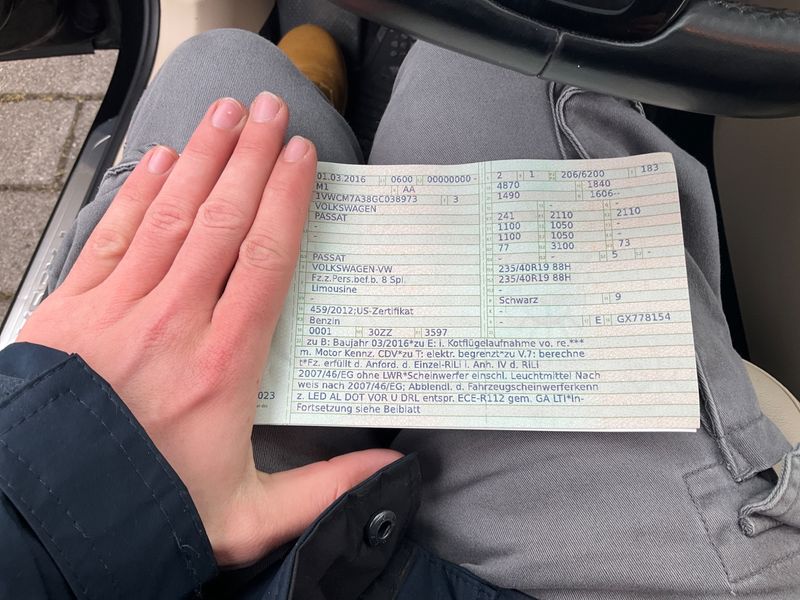 01.03.2016 0600 00000000 - 2 1 206/6200 183
M1 AA 4870 1840
1VWCM7A38GC038973 3 1490 1606--
VOLKSWAGEN - -
PASSAT 241 2110 2110
- 1100 1050 -
- 1100 1050 -
- 77 3100 73
PASSAT - - 5 -
VOLKSWAGEN-VW 235/40R19 88H
Fz.z.Pers.bef.b. 8 Spl. 235/40R19 88H
Limousine -
- Schwarz 9
459/2012;US-Zertifikat -
Benzin - E GX778154
0001 30ZZ 3597
zu B: Baujahr 03/2016*zu E: i. Kotflügelaufnahme vo. re.***
m. Motor Kennz. CDV*zu T: elektr. begrenzt*zu V.7: berechne
t*Fz. erfüllt d. Anford. d. Einzel-RiLi i. Anh. IV d. RiLi
2007/46/EG ohne LWR*Scheinwerfer einschl. Leuchtmittel Nach
weis nach 2007/46/EG; Abblendl. d. Fahrzeugscheinwerferkenn
z. LED AL DOT VOR U DRL entspr. ECE-R112 gem. GA LTI*in-
Fortsetzung siehe Beiblatt
023